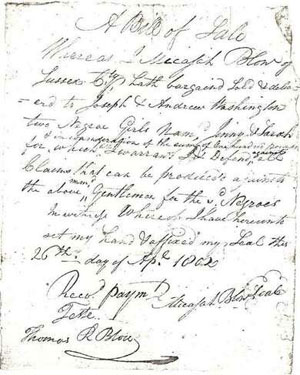 A Bill of Sale
Whereas I Micajah Blow of
Sussex C^ty hath bargained Sold & deliv-
-erd to Joseph & Andrew Washington
two Negroe Girls Nam'd Jenny & Sarah
in consideration of the sum of
for which I warrant & Defend, all
Claims that can be produced against
the above Gentlemen for the s^d Negroes
in witness Whereof I have hereunto
set my hand & affixed my Seal this
26th. day of Apl. 1802
Micajah Blow Seal
Rec^d. paym^t
Teste
Thomas R Blow